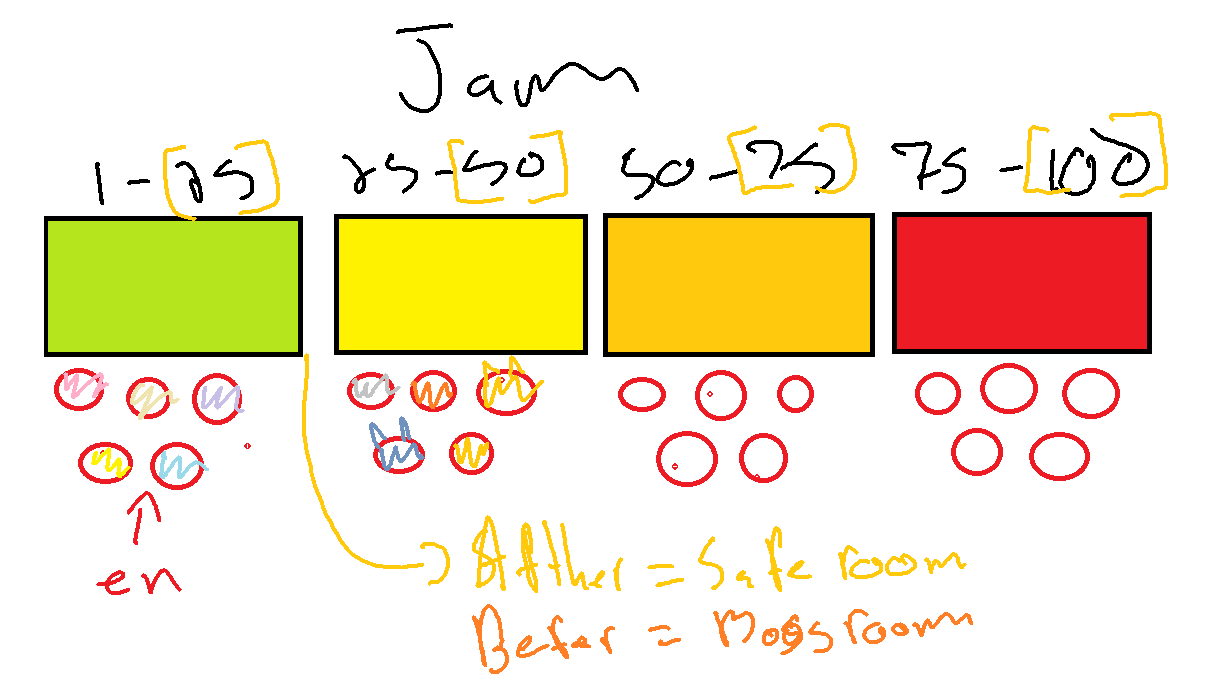 Jam
1-[25] 25-[50] 50-[75] 75-[100]
en
Afther = Safe room
Befor = Boss room